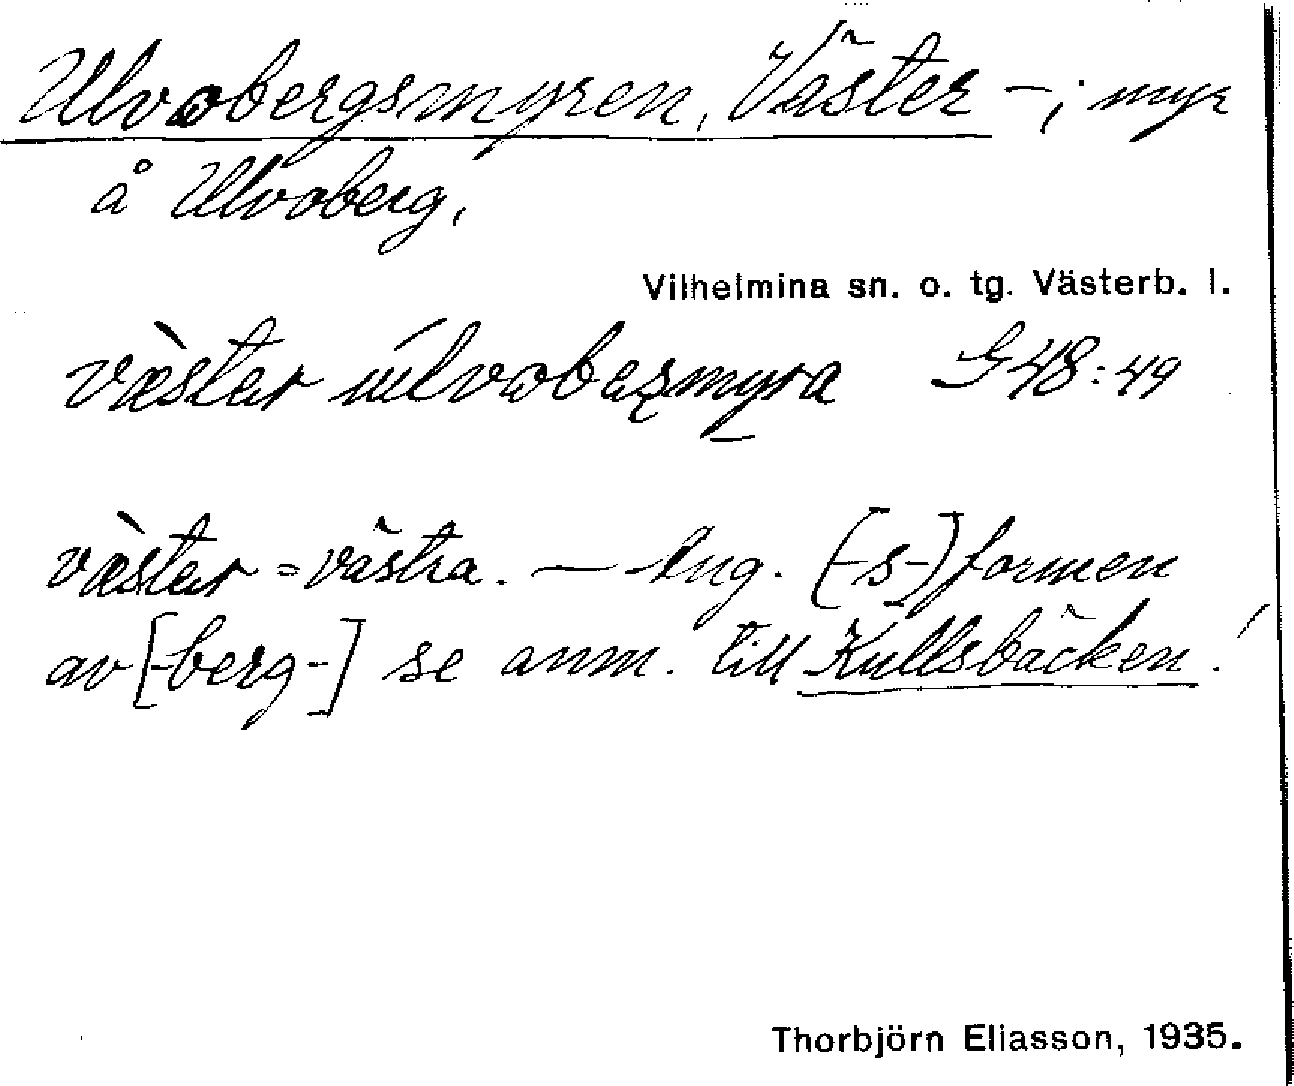 Ulvobergsmyren, Väster -; myr
å Ulvoberg.
Vilhelmina sn. o. tg. Västerb. l.
væ̀star úlvobas̨my̱ra G48:49
væ̀star = västra. — Ang. [-s-]formen
av [-berg-] se anm. till Kullsbäcken!
Thorbjörn Eliasson, 1935.